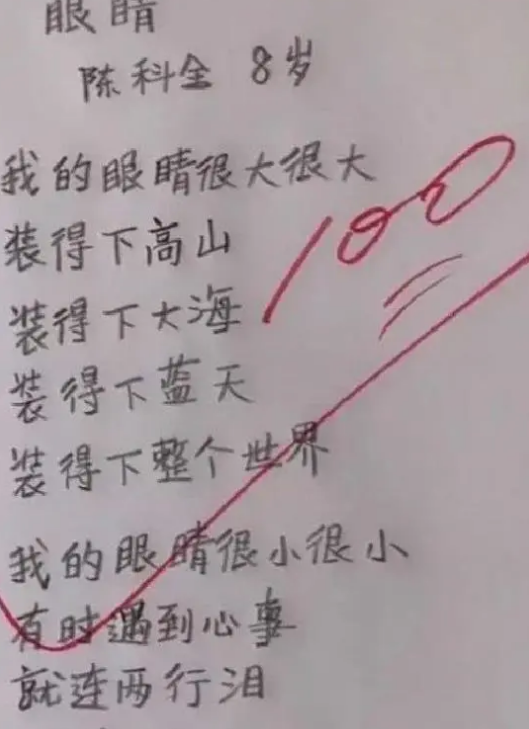 眼睛
陈科全 8岁
我的眼睛很大很大
装得下高山
装得下大海
装得下蓝天
装得下整个世界
我的眼睛很小很小
有时遇到心事
就连两行泪
100